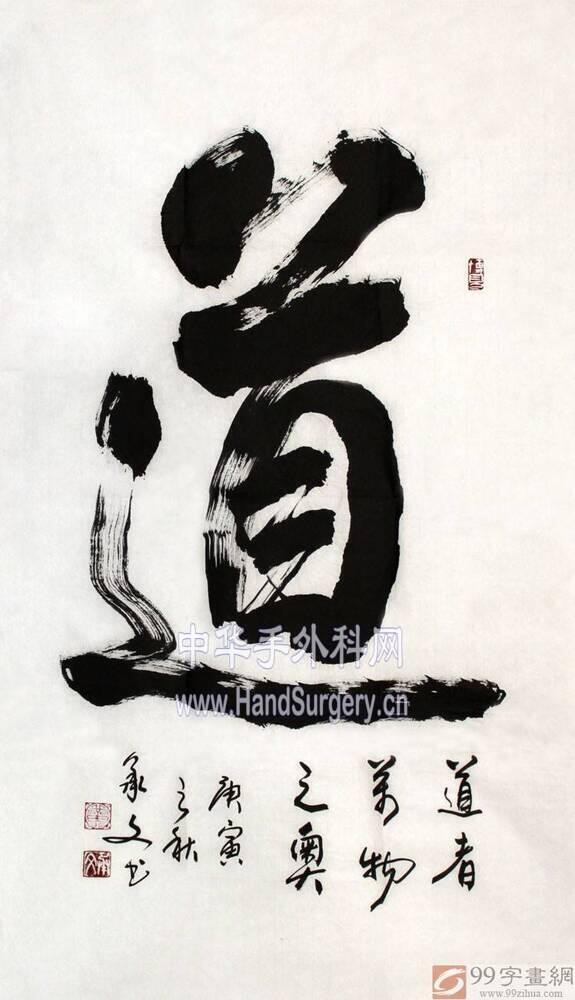 道
道者
萬物
之奧
庚寅
之秋
承文书
中华手外科网
www.HandSurgery.cn
99字畫網
www.99zihua.com